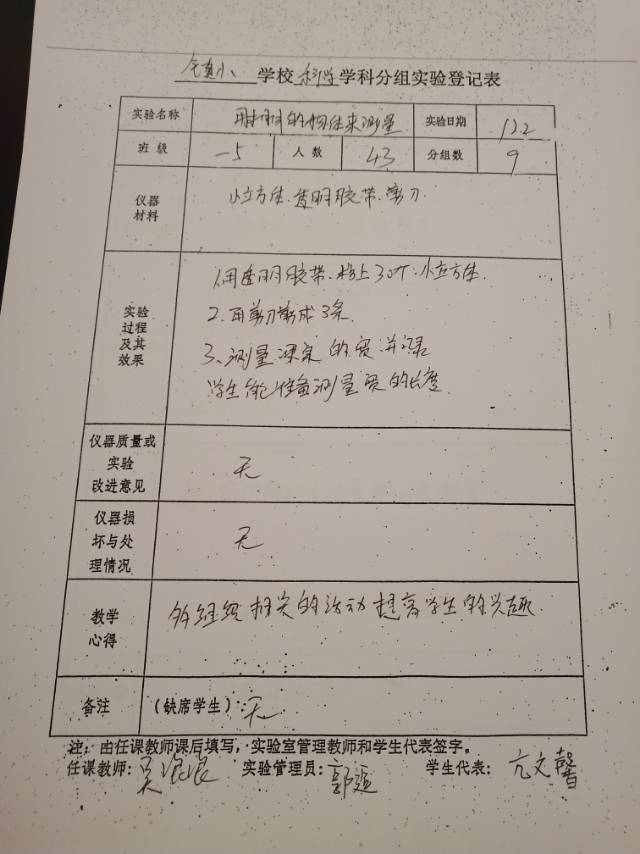 学校 科学 学科分组实验登记表
实验名称 用相同的物体来测量 实验日期 12.2
班级 一5 人数 43 分组数 9
仪器
材料
小立方体、透明胶带、剪刀
实验
过程
及其
效果
1.用透明胶带粘上30个小立方体
2.再剪刀剪成3条
3.测量课桌的宽并记录
学生能准备测量宽的长度
仪器质量或
实验
改进意见
无
仪器损
坏与处
理情况
无
教学
心得
多组织相关的活动提高学生的兴趣
备注 (缺席学生): 无
注:由任课教师课后填写,实验室管理教师和学生代表签字。
任课教师: 吴 实验管理员: 郭 学生代表: 亢文馨